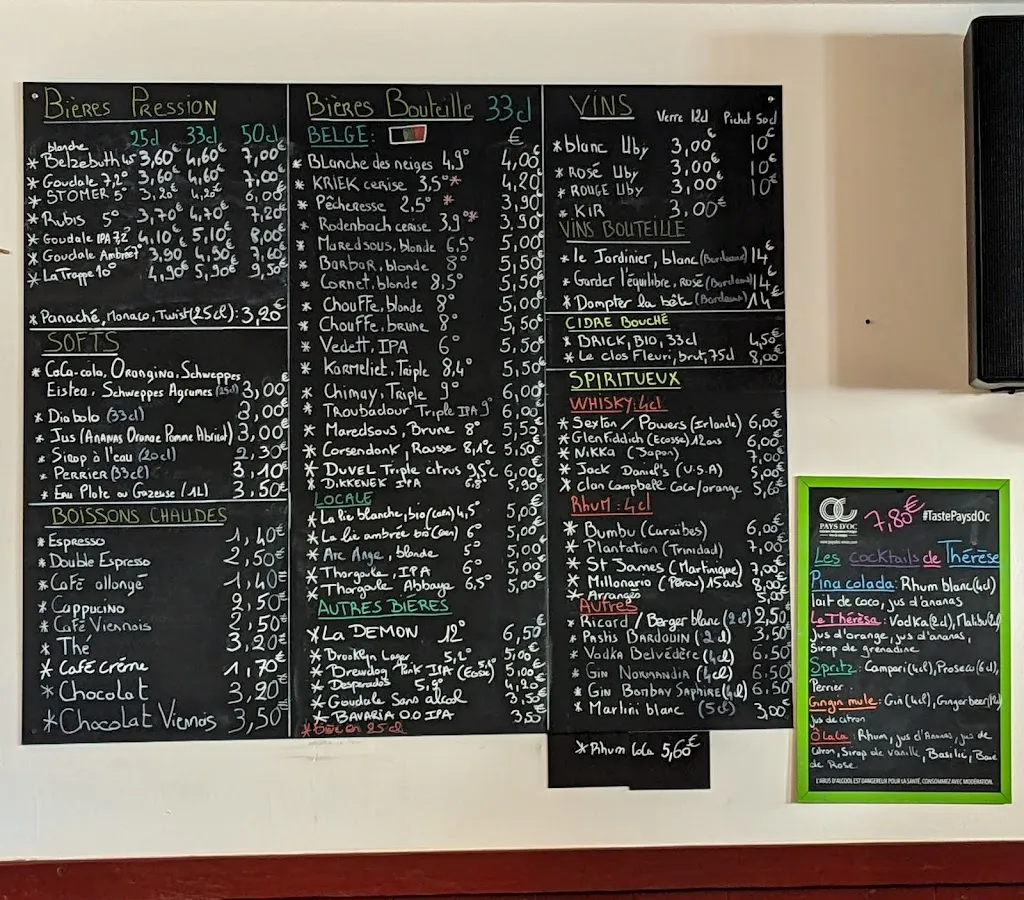 BIÈRES PRESSION
25cl 33cl 50cl
blanche
* Belzebuth 4,5 3,60€ 4,60€ 7,00€
* Goudale 7,2° 3,60€ 4,60€ 7,00€
* STOMER 5° 3,20€ 4,20€ 6,00€
* Rubis 5° 3,70€ 4,70€ 7,20€
* Goudale IPA 7,2° 4,10€ 5,10€ 8,00€
* Goudale Ambrée 7° 3,90 4,90€ 7,60€
* La Trappe 10° 4,90€ 5,90€ 9,50€
* Panaché, Monaco, Twist (25cl): 3,20€
SOFTS
* Coca-cola, Orangina, Schweppes
Eistea, Schweppes Agrumes (25cl) 3,00€
* Diabolo (33cl) 3,00€
* Jus (Ananas Orange Pomme Abricot) 3,00€
* Sirop à l'eau (20cl) 2,30€
* Perrier (33cl) 3,10€
* Eau Plate ou Gazeuse (1L) 3,50€
BOISSONS CHAUDES
* Espresso 1,40€
* Double Espresso 2,50€
* Café allongé 1,40€
* Cappucino 2,50€
* Café Viennois 2,50€
* Thé 3,20€
* Café Crème 1,70€
* Chocolat 3,20€
* Chocolat Viennois 3,50€
Bières Bouteille 33cl
BELGE: €
* Blanche des neiges 4,9° 4,00€
* KRIEK cerise 3,5°* 4,20€
* Pêcheresse 2,5° * 3,90€
* Rodenbach cerise 3,9°* 3,90€
* Maredsous, blonde 6,5° 5,00€
* Barbar, blonde 8° 5,50€
* Cornet, blonde 8,5° 5,50€
* Chouffe, blonde 8° 5,00€
* Chouffe, brune 8° 5,50€
* Vedett, IPA 6° 5,50€
* Karmeliet, Triple 8,4° 5,50€
* Chimay, Triple 9° 6,00€
* Troubadour Triple IPA 9° 6,00€
* Maredsous, Brune 8° 5,55€
* Corsendonk, Rousse 8,1°c 5,50€
* DUVEL Triple citrus 9,5°c 6,00€
* DIKKENEK IPA 6.8° 5,90€
LOCALE
* La lie blanche, bio (caen) 4,5° 5,00€
* La lie ambrée bio (caen) 6° 5,00€
* Arc Ange, blonde 5° 5,00€
* Thorgoule, IPA 6° 5,00€
* Thorgoule Abbaye 6,5° 5,00€
AUTRES BIÈRES
* LA DEMON 12° 6,50€
* Brooklyn Lager 5,2° 5,00€
* Brewdog Punk IPA (Ecosse) 5,4° 5,00€
* Desperados 5,9° 4,20€
* Goudale Sans alcool 3,50€
* BAVARIA 0.0 IPA 3,50€
* bière en 25 cl
VINS
Verre 12cl Pichet 50cl
* blanc Uby 3,00€ 10€
* Rosé Uby 3,00€ 10€
* ROUGE Uby 3,00€ 10€
* KIR 3,00€
VINS BOUTEILLE
* le Jardinier, blanc (Bordeaux) 14€
* Garder l'équilibre, Rosé (Bordeaux) 14€
* Dompter la bête (Bordeaux) 14€
CIDRE BOUCHÉ
* BRICK, BIO, 33cl 4,50€
* Le clos Fleuri, brut, 75cl 8,00€
SPIRITUEUX
WHISKY: 4cl
* Sexton / Powers (Irlande) 6,00€
* Glenfiddich (Ecosse) 12ans 6,00€
* Nikka (Japon) 7,00€
* Jack Daniel's (U.S.A) 5,00€
* Clan Campbell Coca/orange 5,60€
Rhum: 4cl
* Bumbu (Caraïbes) 6,00€
* Plantation (Trinidad) 7,00€
* St James (Martinique) 7,00€
* Millonario (Pérou) 15ans 8,00€
* Arrangés 5,00€
Autres
* Ricard / Berger blanc (2cl) 2,50€
* Pastis BARDOUIN (2cl) 3,50€
* Vodka Belvédère (4cl) 6.50€
* Gin Normandia (4cl) 6.50€
* Gin Bombay Saphire (4cl) 6.50€
* Martini blanc (5cl) 3,00€
* Rhum Cola 5,60€
PAYS D'OC
7,80€
#TastePaysdOc
Les Cocktails de Thérèse
Pina colada: Rhum blanc (4cl)
lait de coco, jus d'ananas
Le Thérèsa: Vodka (2cl), Malibu (2cl)
jus d'orange, jus d'ananas,
Sirop de grenadine
Spritz: Campari (4cl), Proseco (6cl),
Perrier.
Gingin mule: Gin (4cl), Ginger beer (12cl)
jus de citron
Ô LaLa: Rhum, jus d'Ananas, jus de
citron, Sirop de vanille, Basilic, Baie
de Rose
L'ABUS D'ALCOOL EST DANGEREUX POUR LA SANTÉ, CONSOMMEZ AVEC MODÉRATION.